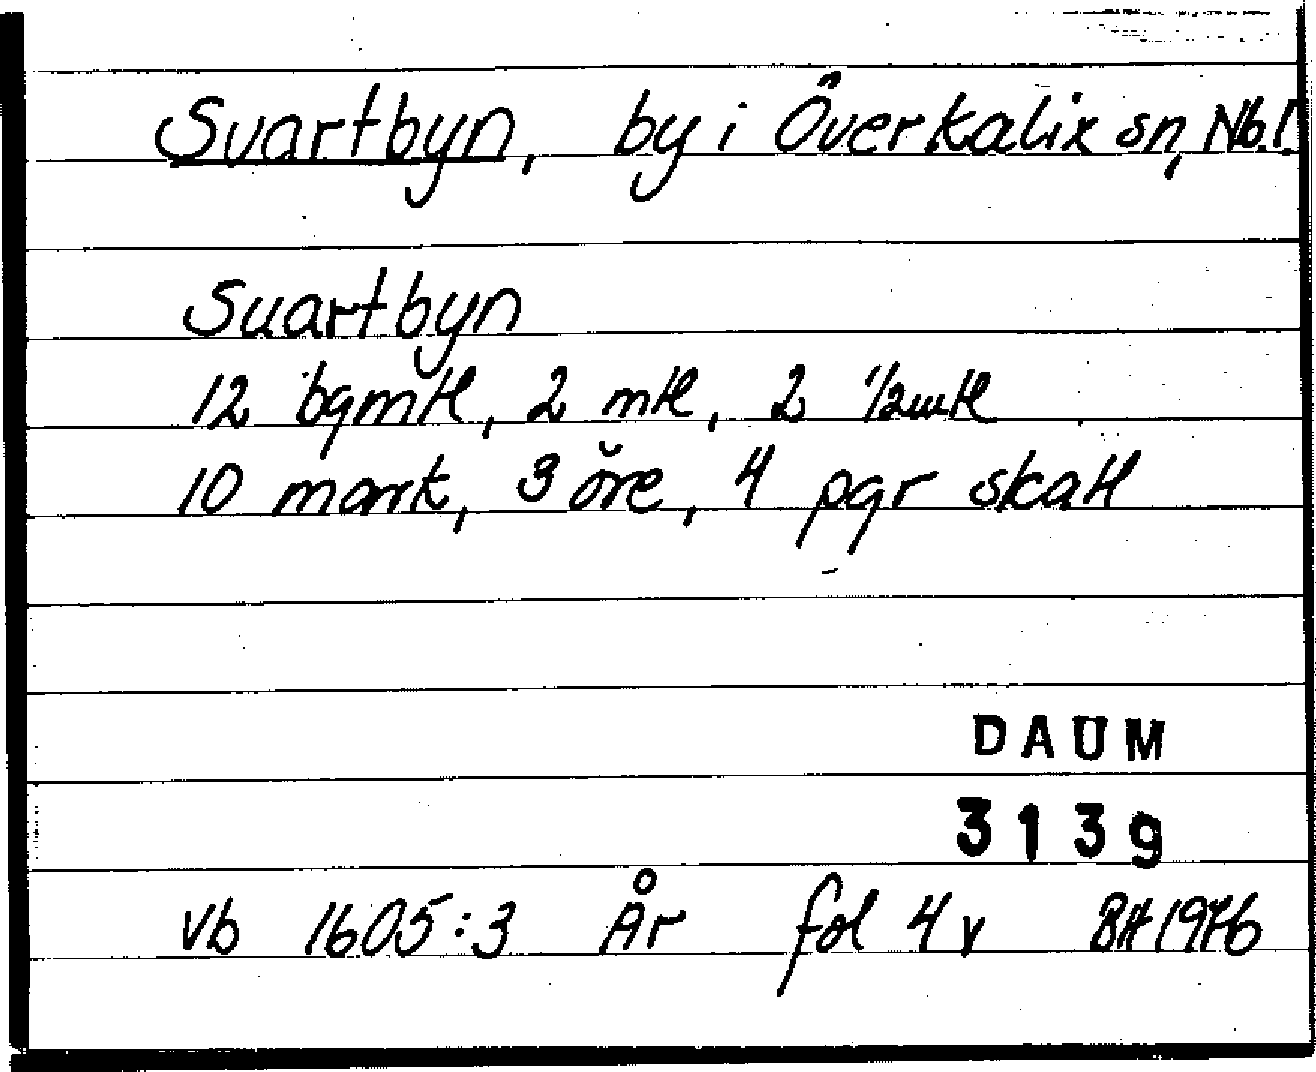 Svartbyn, by i Överkalix sn, Nb.l.
Suartbyn
12 bgmtl, 2 mtl, 2 1/2mtl
10 mark, 3 öre, 4 pgr skatt
DAUM
3139
Vb 1605:3 År fol 4v BH 1976